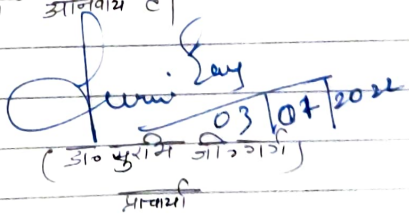 अनिवार्य है।
03/07/2022
( डा० सुरभि जी० गर्ग )
प्राचार्या